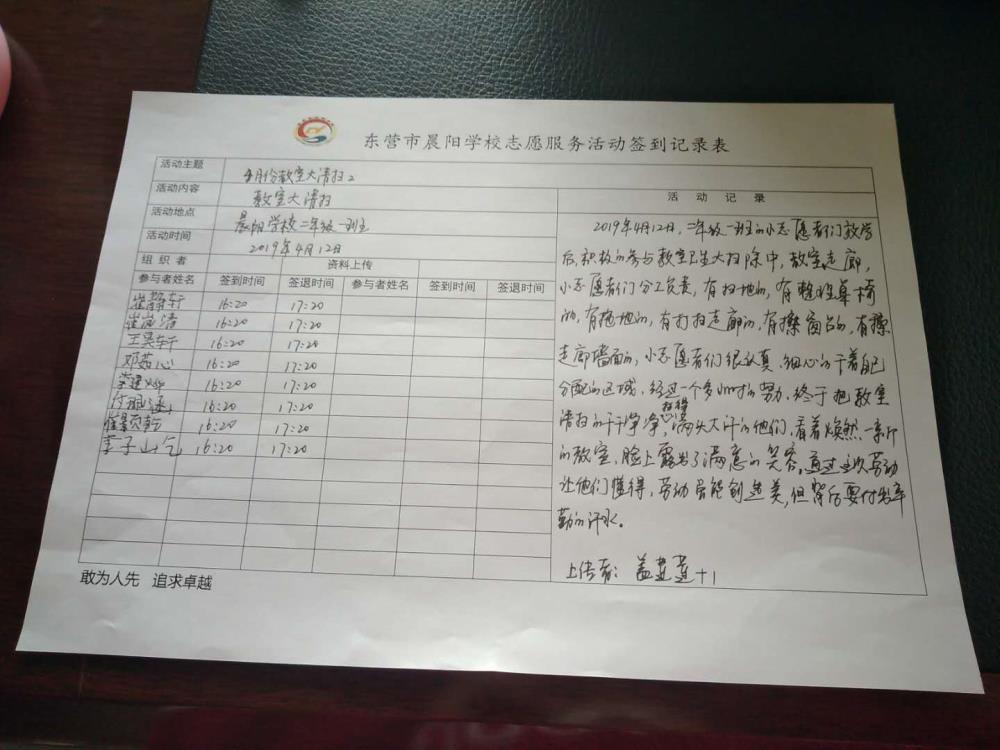 东营市晨阳学校志愿服务活动签到记录表
活动主题 4月份教室大清扫2
活动内容 教室大清扫
活动地点 晨阳学校二年级一班
活动时间 2019年4月12日
组织者 资料上传
参与者姓名 签到时间 签退时间 参与者姓名 签到时间 签退时间
16:20 17:20
16:20 17:20
王昊轩 16:20 17:20
邓茹心 16:20 17:20
16:20 17:20
16:20 17:20
16:20 17:20
16:20 17:20
活动记录
2019年4月12日,二年级一班的小志愿者们放学
后,积极的参与教室卫生大扫除中,教室走廊,
小志愿者们分工负责,有扫地的,有整理桌椅
的,有拖地的,有打扫走廊的,有擦窗台的,有擦
走廊墙面的,小志愿者们很认真、细心的干着自己
分配的区域,经过一个多小时的努力,终于把教室
清扫的干干净净,满头大汗的他们,看着焕然一新
的教室,脸上露出了满意的笑容,通过这次劳动
让他们懂得,劳动虽能创造美,但背后要付出辛
勤的汗水。
上传者:
敢为人先 追求卓越